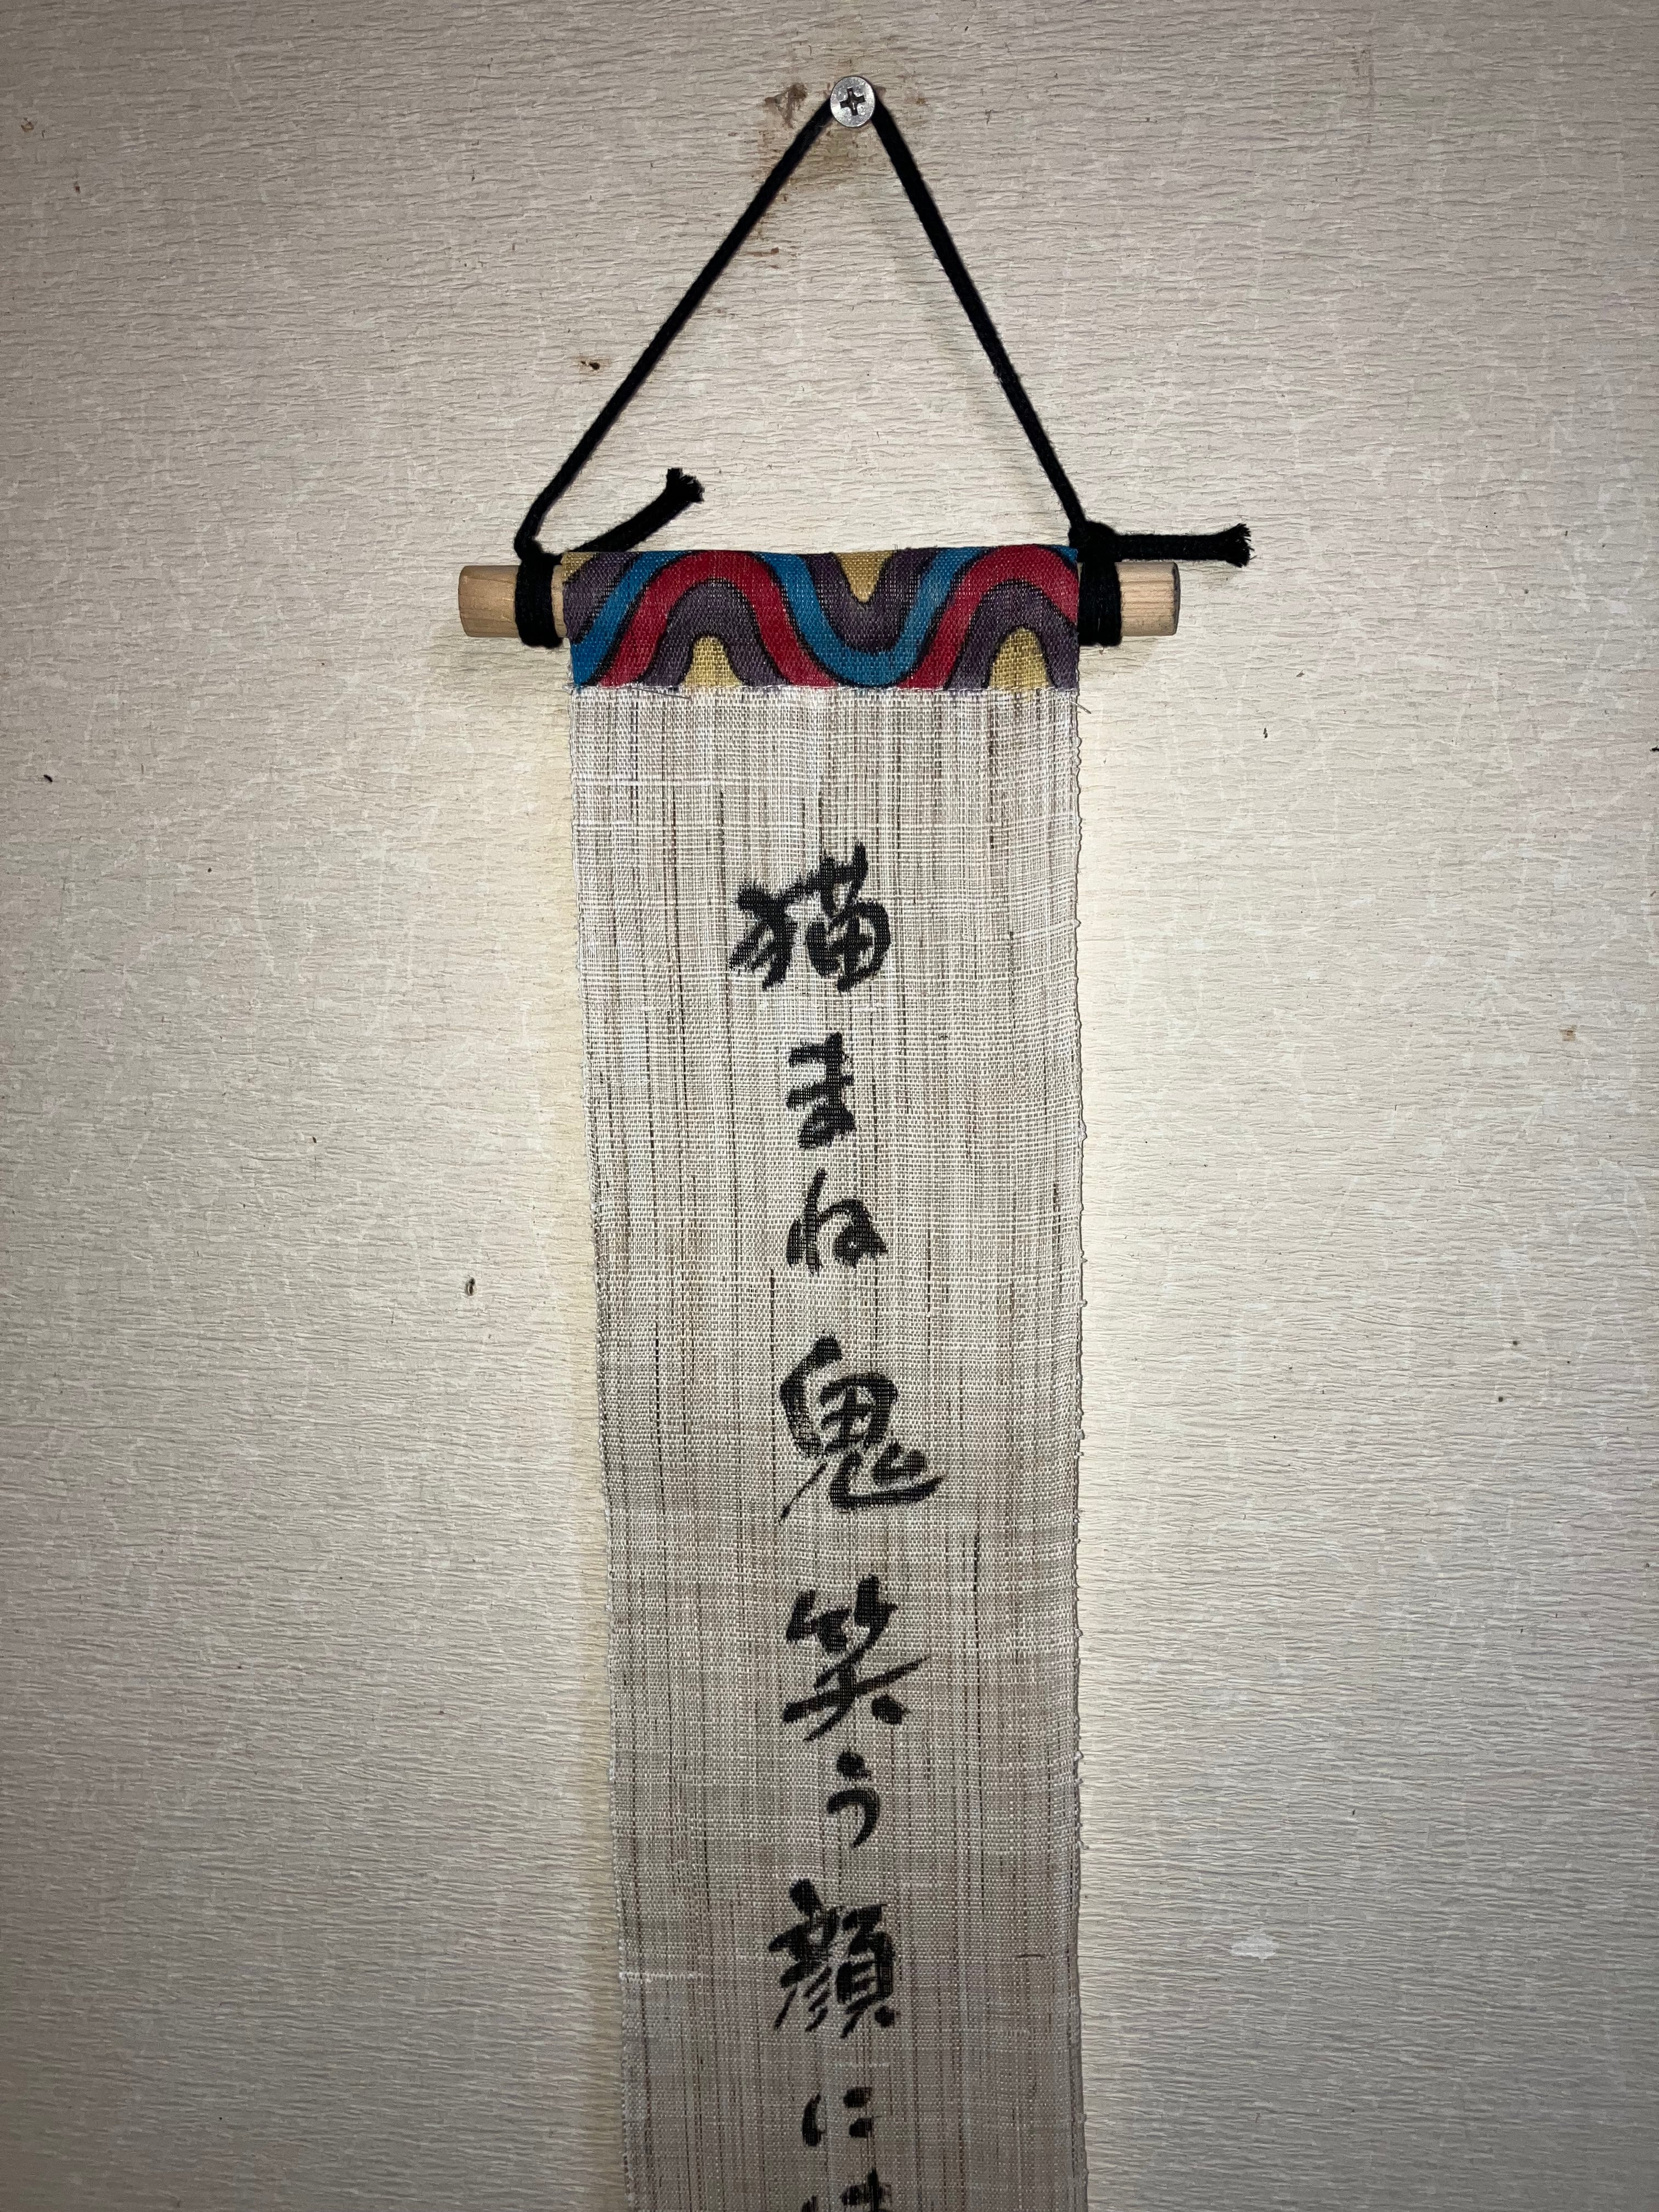 猫まね鬼笑う顔に